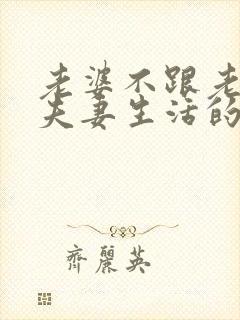 老婆不跟老
夫妻生活的
齊麗英